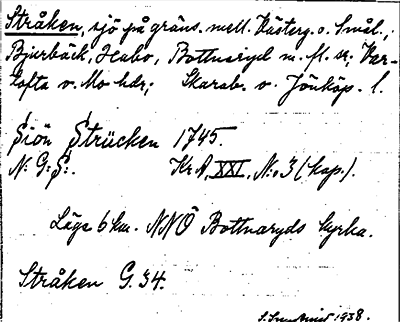 Stråken, sjö på gräns. mell. Västerg. o. Smål.;
Bjurbäck, Habo, Bottnaryd m. fl. sr; Var-
tofta o. Mo hdr; Skarab. o. Jönköp. l.
Siön Strücken 1745.
N: G: S:. Kr A, XXI, N:o 3 (kop.).
Läge 6 km. NNÖ Bottnaryds kyrka.
Stråken G. 34.
1938.